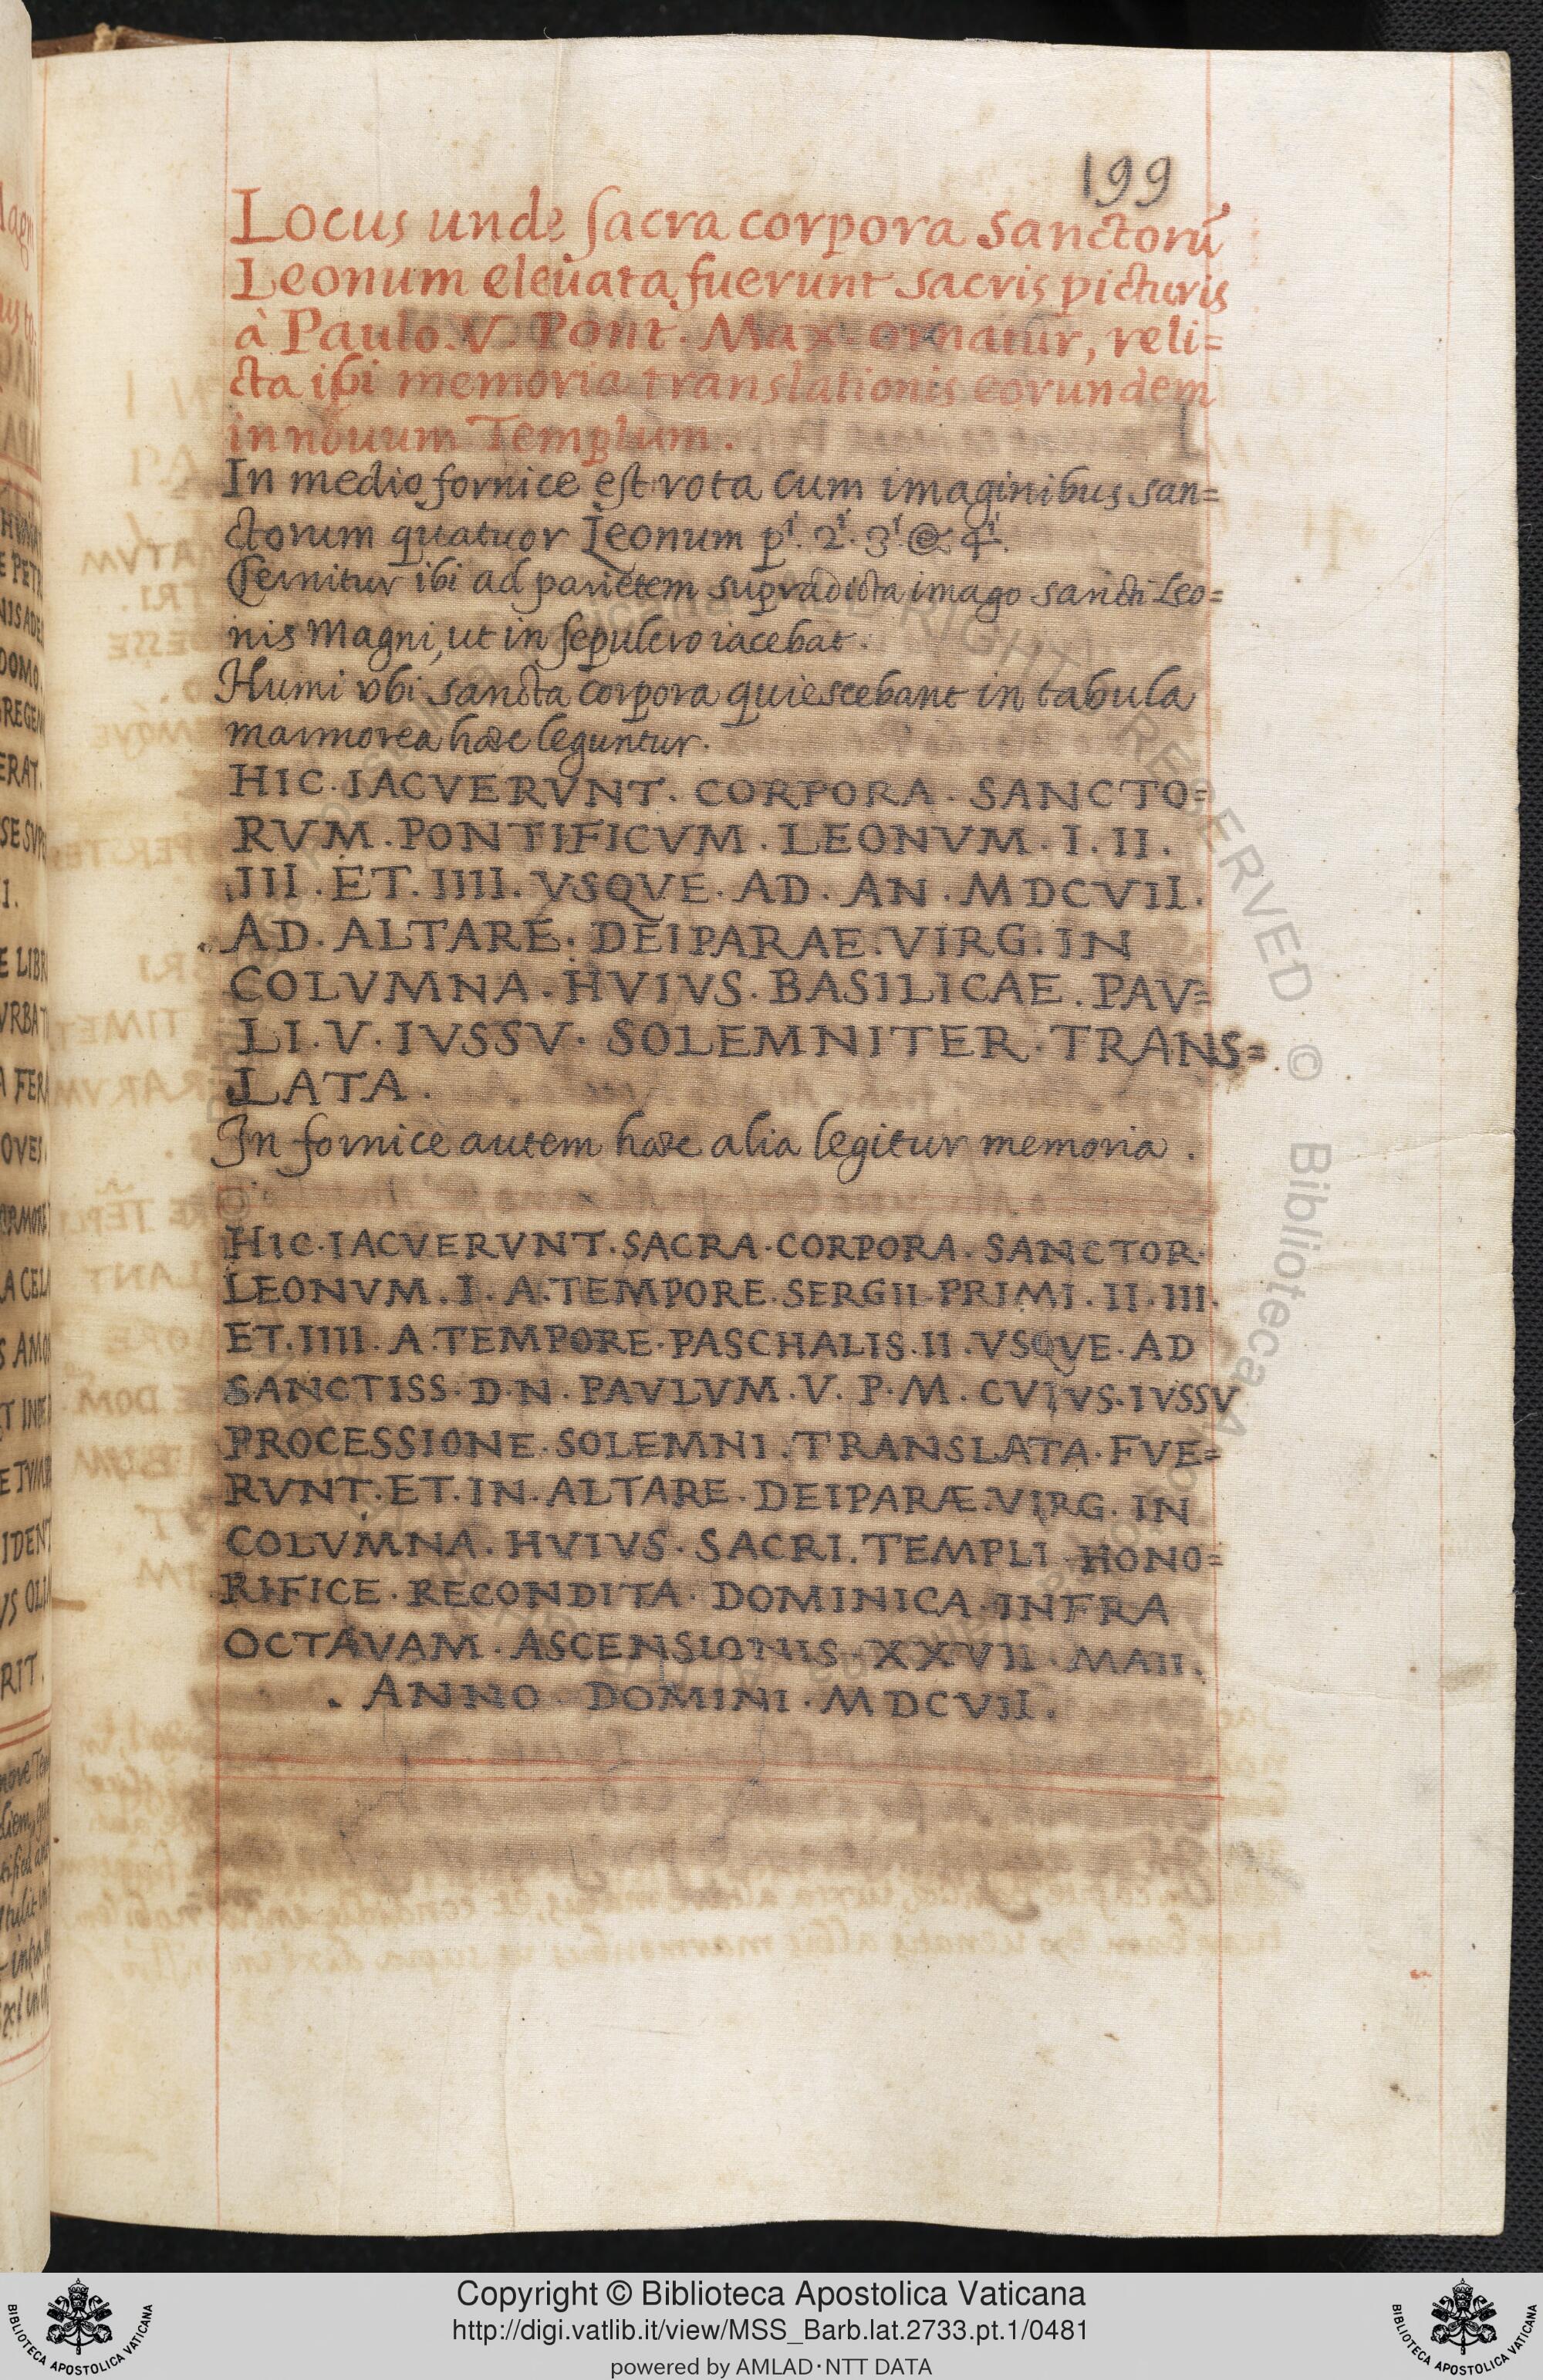 199
Locus unde sacra corpora sanctorú
Leonum eleuata fuerunt sacris picturis
à Paulo. V. Pont. Max. ornatur, reli=
cta ibi memoria translationis eorundem
in nouum Templum.
In medio fornice est rota cum imaginibus san=
ctorum quatuor Leonum pⁱ. 2ⁱ. 3ⁱ. & 4ⁱ.
Cernitur ibi ad parietem supradicta imago sancti Leo=
nis Magni, ut in sepulcro iacebat.
Humi vbi sancta corpora quiescebant in tabula
marmorea haec leguntur.
HIC. IACVERVNT. CORPORA. SANCTO=
RVM. PONTIFICVM. LEONVM. I. II.
III. ET. IIII. VSQVE. AD. AN. MDCVII.
AD. ALTARE. DEIPARAE. VIRG. IN
COLVMNA. HVIVS. BASILICAE. PAV=
LI. V. IVSSV. SOLEMNITER. TRANS=
LATA.
In fornice autem haec alia legitur memoria.
HIC. IACVERVNT. SACRA. CORPORA. SANCTOR.
LEONVM. I. A. TEMPORE. SERGII. PRIMI. II. III.
ET. IIII. A. TEMPORE. PASCHALIS. II. VSQVE. AD
SANCTISS. D. N. PAVLVM. V. P. M. CVIVS. IVSSV
PROCESSIONE. SOLEMNI. TRANSLATA. FVE=
RVNT. ET. IN. ALTARE. DEIPARÆ. VIRG. IN
COLVMNA. HVIVS. SACRI. TEMPLI. HONO=
RIFICE. RECONDITA. DOMINICA. INFRA
OCTAVAM. ASCENSIONIS. XXVII. MAII.
. ANNO. DOMINI. MDCVII.
Copyright © Biblioteca Apostolica Vaticana
http://digi.vatlib.it/view/MSS_Barb.lat.2733.pt.1/0481
powered by AMLAD·NTT DATA
BIBLIOTECA APOSTOLICA VATICANA
BIBLIOTECA APOSTOLICA VATICANA